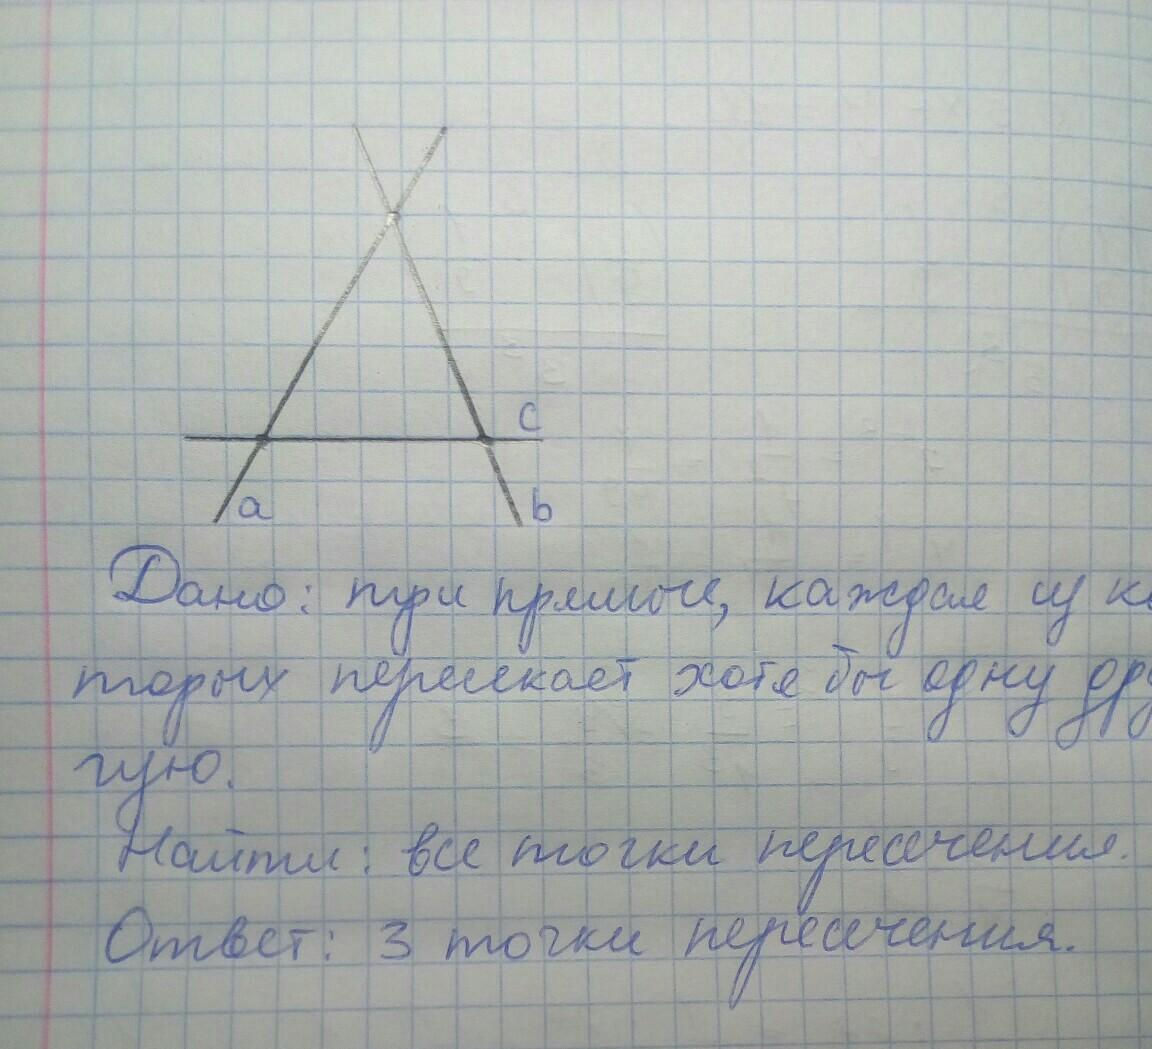 c
a b
Дано: три прямые, каждая из ко
торых пересекает хотя бы одну дру
гую.
Найти: все точки пересечения.
Ответ: 3 точки пересечения.